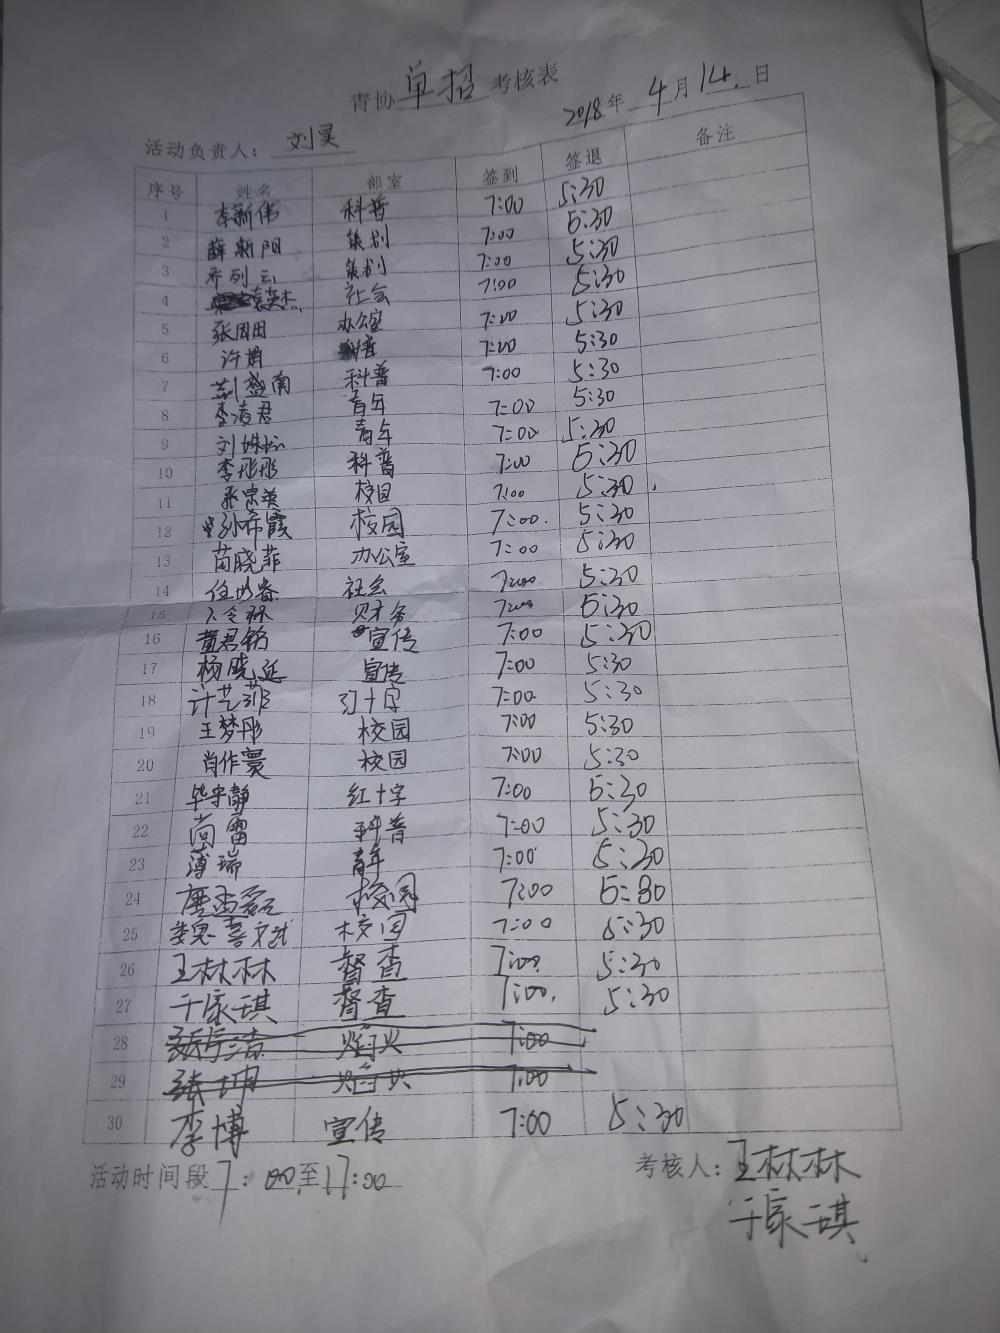 青协单招考核表
2018年4月14日
活动负责人：刘昊
序号 姓名 部室 签到 签退 备注
1 李新伟 科普 7:00 5:30
2 薛新阳 策划 7:00 5:30
3 乔列云 策划 7:00 5:30
4 袁英杰 社会 7:00 5:30
5 张田田 办公室 7:00 5:30
6 许娟 7:00 5:30
7 荆盛南 科普 7:00 5:30
8 李凌君 青年 7:00 5:30
9 刘姝 青年 7:00 5:30
10 李彤彤 科普 7:00 5:30
11 张宗英 校园 7:00 5:30
12 孙希霞 校园 7:00 5:30
13 苗晓菲 办公室 7:00 5:30
14 任 社会 7:00 5:30
15 财务 7:00 5:30
16 董君 宣传 7:00 5:30
17 杨晓延 宣传 7:00 5:30
18 许艺菲 红十字 7:00 5:30
19 王梦彤 校园 7:00 5:30
20 肖作寰 校园 7:00 5:30
21 毕守静 红十字 7:00 5:30
22 尚雷 科普 7:00 5:30
23 薄瑞 青年 7:00 5:30
24 校园 7:00 5:30
25 校园 7:00 5:30
26 王林林 督查 7:00 5:30
27 于家琪 督查 7:00 5:30
28 焰火 7:00
29 张坤 焰火 7:00
30 李博 宣传 7:00 5:30
活动时间段7:00至17:00
考核人：王林林
于家琪